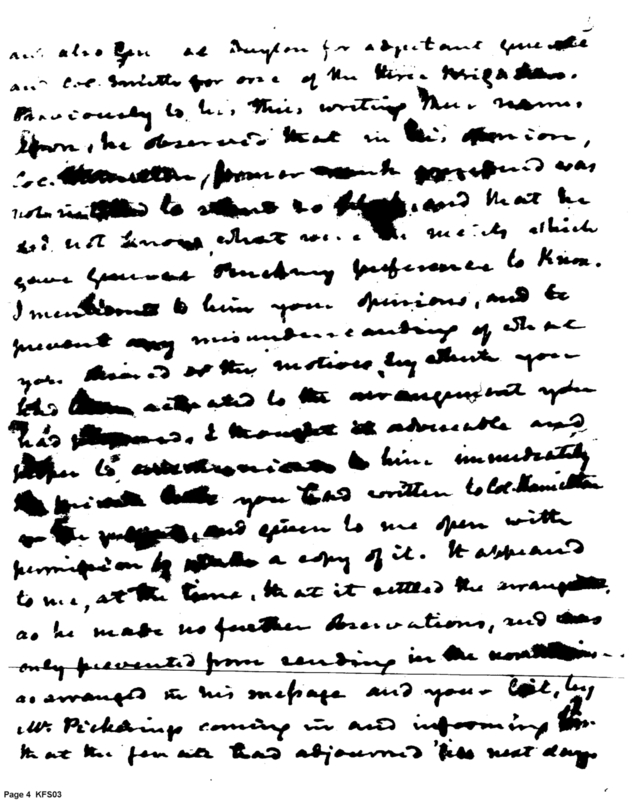 also Gen al Dayton for adjutant general
and Col. Smith for one of the three Brigades.
Previously to his thus writing their names
down, he observed that in his opinion,
Col. Hamilton, former rank was
to so and that he
did not know, what were the merits which
gave General Pinckney preference to Knox.
I mentioned to him your opinions, and to
prevent any misunderstanding of what
you desired or the motives, by which you
had been actuated to the arrangement you
had proposed, I thought it adviseable and
proper to communicate to him immediately
the private letter you had written to Col. Hamilton
on the subject, and given to me open with
permission to take a copy of it. It appeared
to me, at the time, that it settled the arrangement,
as he made no further observations, and was
only prevented from sending in the nominations
as arranged in his message and your list, by
Mr. Pickerings coming in and informing him
that the senate had adjourned 'till next day
Page 4 KFS03